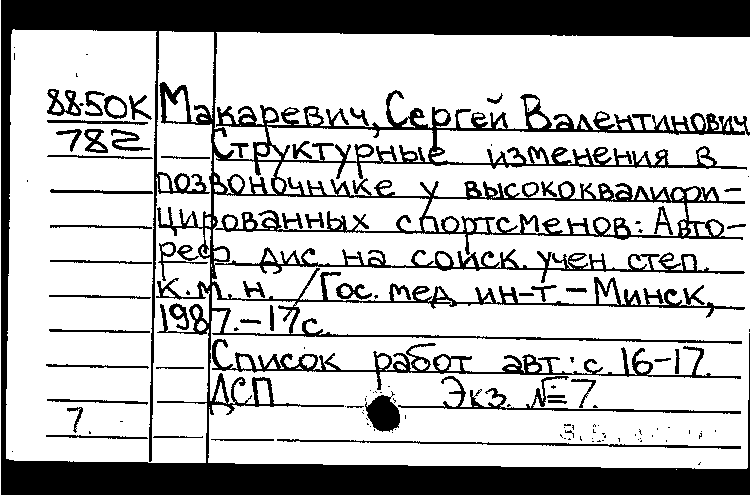 88-50К Макаревич, Сергей Валентинович
782 Структурные изменения в
позвоночнике у высококвалифи-
цированных спортсменов: Авто-
реф. дис. на соиск. учен. степ.
к.м.н. / Гос. мед. ин-т. - Минск,
1987. - 17 с.
Список работ авт.: с. 16-17.
ДСП Экз. № 7.
7.